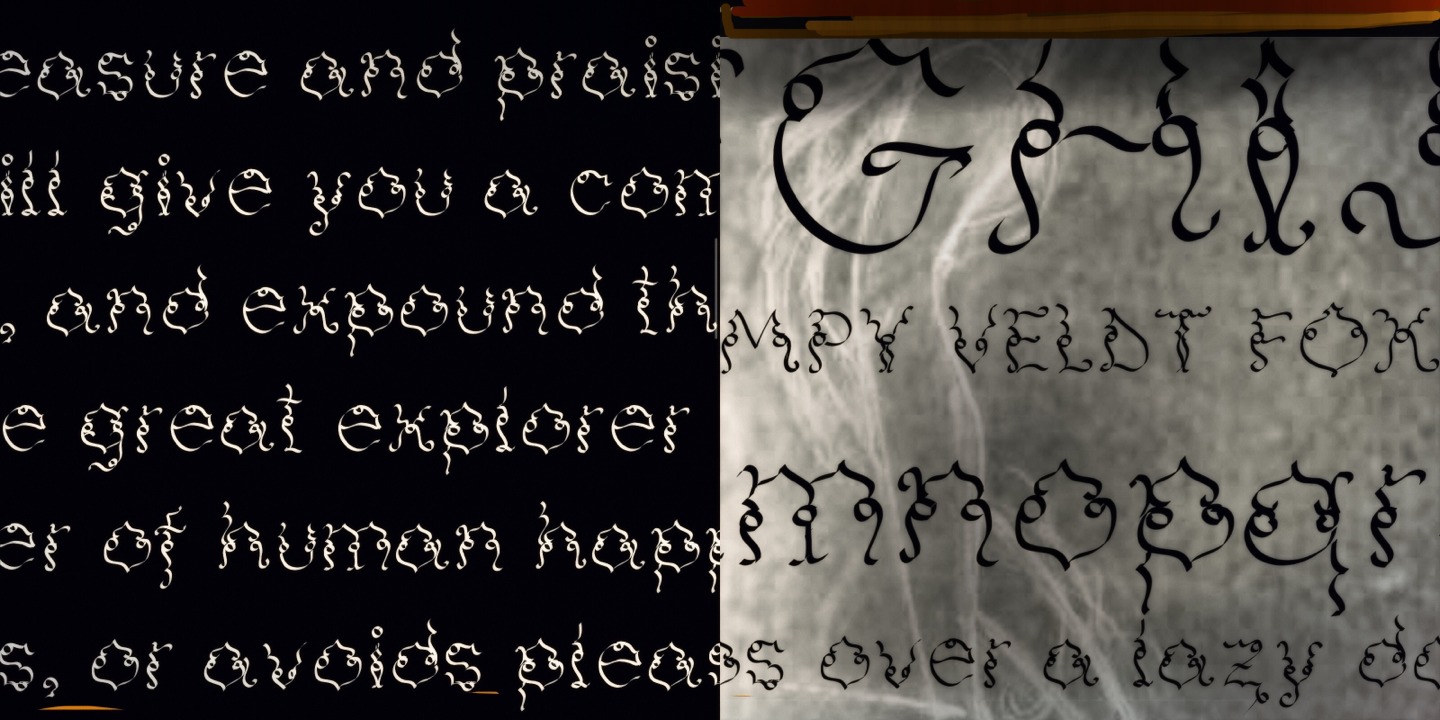 easure and prais
ill give you a com
, and expound th
e great explorer
er of human happ
s, or avoids pleas
G H I J
MPY VELDT FOX
mnopqr
s over a lazy do